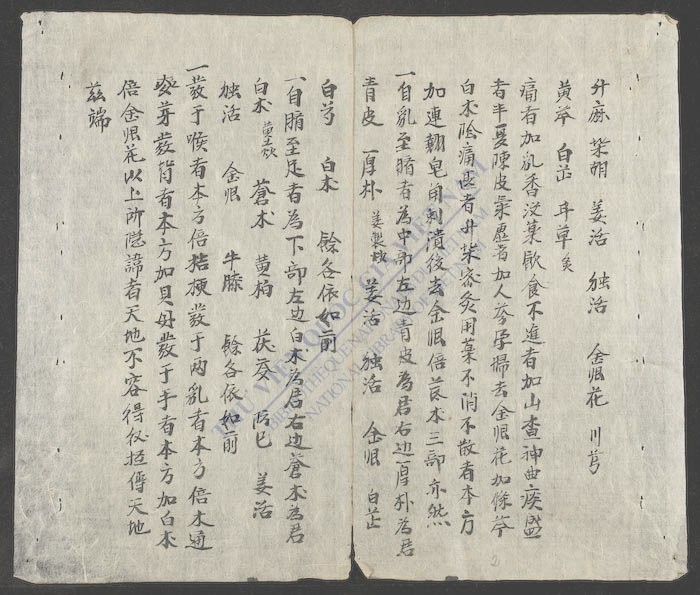 升麻 柴胡 姜活 独活 金眼花 川芎
黄芩 白芷 甘草炙
痛者加乳香没薬飲食不進者加山查神曲痰盛
者半夏陳皮氣虛者加人參孕婦去金眼花加條芩
白术陰痛甚者升柴密炙用薬不消不散者本方
加連翹皂角刺潰後去金眼倍芪术三部亦然
一自乳至臍者為中部左边青皮為君右边厚朴為君
青皮 厚朴姜製 姜活 独活 金眼 白芷
白芍 白术 餘各依如前
一自臍至足者為下部左边白术為君右边蒼术為君
白术黄土炒 蒼术 黄柏 茯苓 防已 姜活
独活 金眼 牛膝 餘各依如前
一發于喉者本方倍桔梗發于两乳者本方倍木通
麥芽發背者本方加貝母發于手者本方加白术
倍金眼花以上所隐諱者天地不容得衫 傳天地
兹端
THƯ VIỆN QUỐC GIA VIỆT NAM
BIBLIOTHÈQUE NATIONALE DU VIETNAM
NATIONAL LIBRARY OF VIETNAM
2